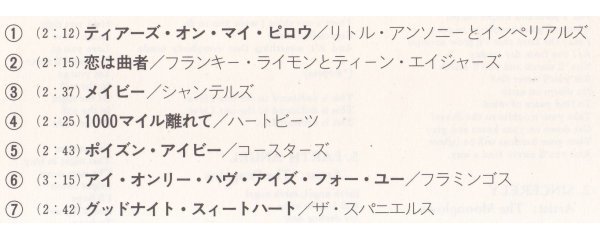 ① (2：12) ティアーズ・オン・マイ・ピロウ／リトル・アンソニーとインペリアルズ
② (2：15) 恋は曲者／フランキー・ライモンとティーン・エイジャーズ
③ (2：37) メイビー／シャンテルズ
④ (2：25) 1000マイル離れて／ハートビーツ
⑤ (2：43) ポイズン・アイビー／コースターズ
⑥ (3：15) アイ・オンリー・ハヴ・アイズ・フォー・ユー／フラミンゴス
⑦ (2：42) グッドナイト・スィートハート／ザ・スパニエルス